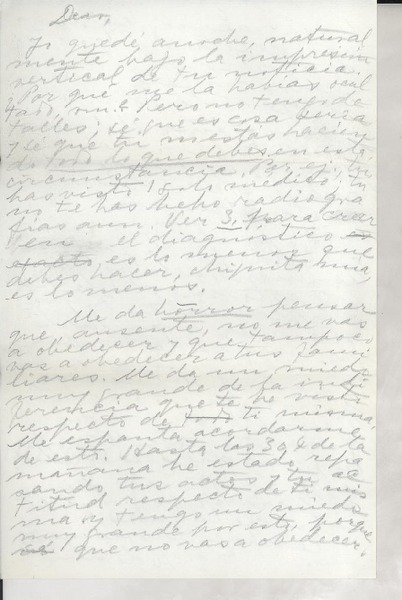 Dear,
Yo quedé, anoche, natural
mente bajo la impresión
vertical de tu noticia.
¿Por qué me la habías ocul
tado, m.m.? Pero no tengo de
talles; sé que es cosa seria
y sé que tú no estás hacien
do todo lo que debes en esta
circunstancia. Por ej. tú
has visto 1 solo médico; tú
no te has hecho radiogra
fías aun. Ver 3, para creer
en el diagnóstico
es lo menos que
debes hacer, chiquita mía,
es lo menos.
Me da horror pensar
que, ausente, no me vas
a obedecer y que tampoco
vas a obedecer a tus fami
liares. Me da un miedo
muy grande de la indi
ferencia que te he visto
respecto de ti misma.
Me espanta acordarme
de esto. Hasta las 3 de la
mañana he estado repa
sando tus actos y tu ac
titud respecto de ti mis
ma y tengo un miedo
muy grande por esto, porque
sé que no vas a obedecer.